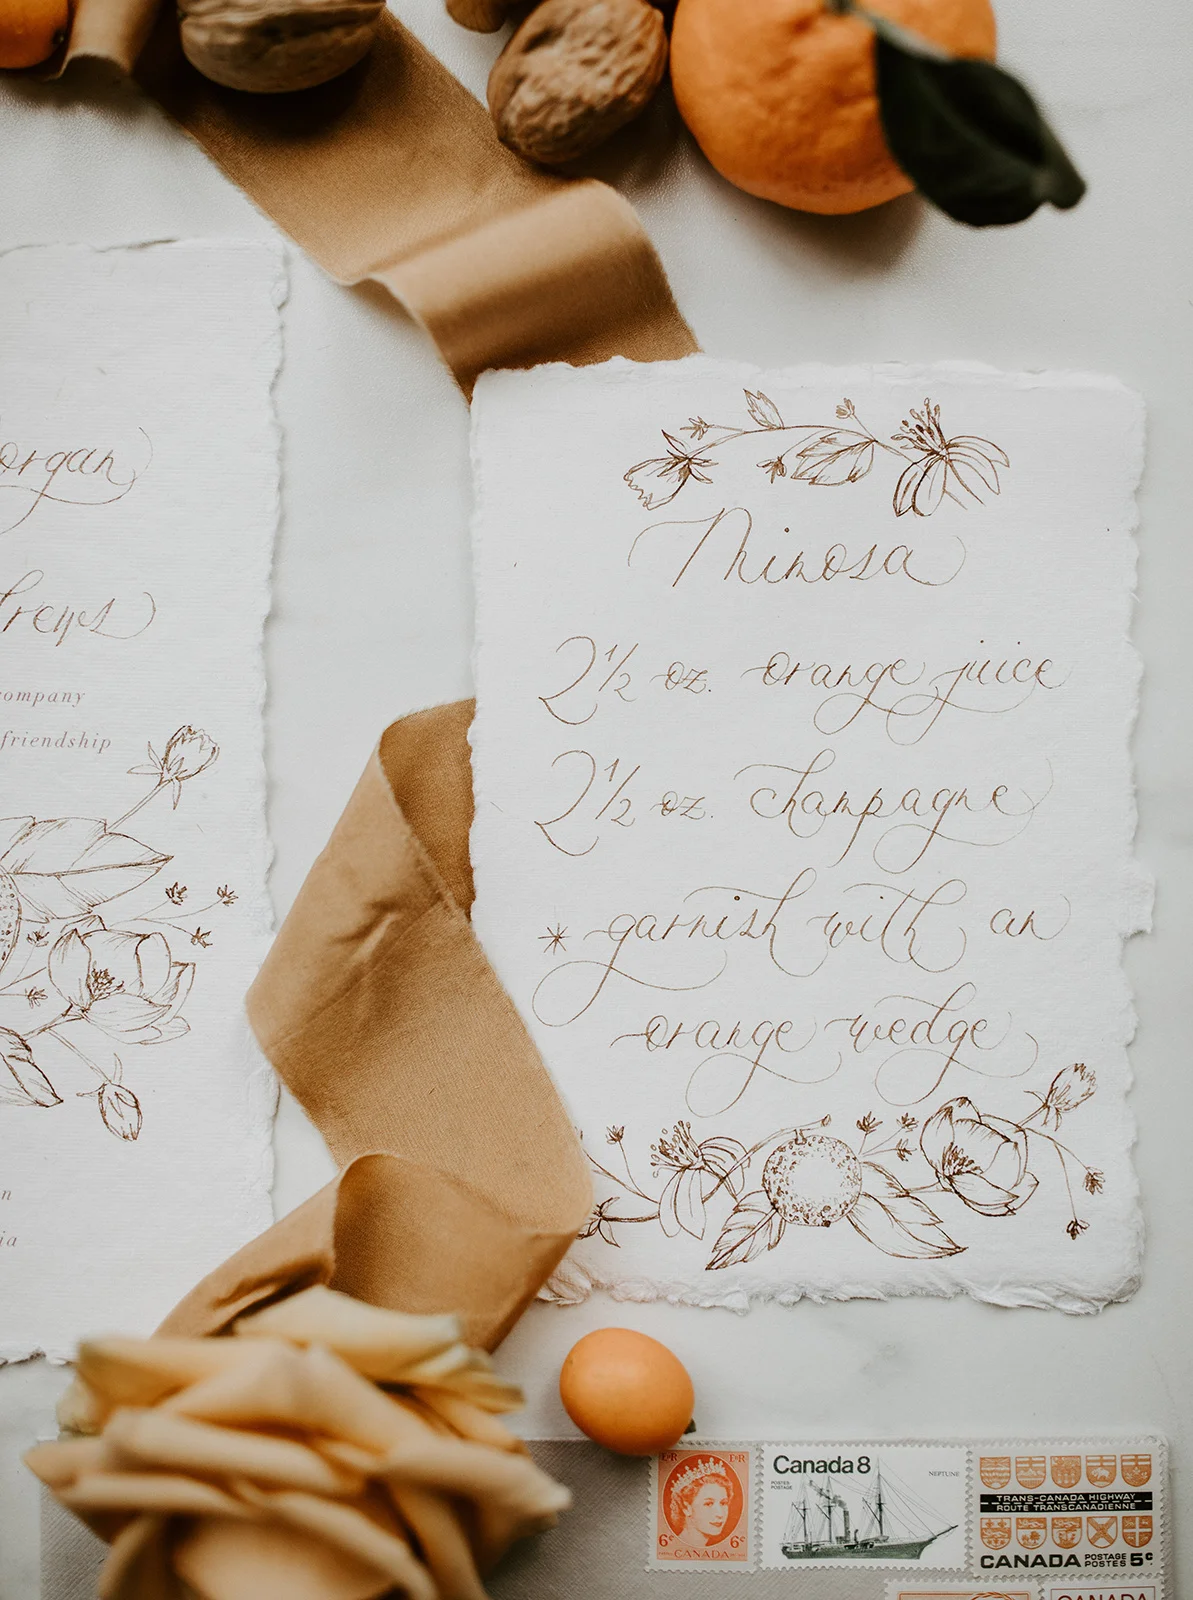 organ
ompany
friendship
n
ia
Mimosa
2 1/2 oz. orange juice
2 1/2 oz. champagne
* garnish with an
orange wedge
E II R E II R
6c 6c
CANADA
Canada 8
POSTES
POSTAGE
NEPTUNE
TRANS-CANADA HIGHWAY
ROUTE TRANSCANADIENNE
CANADA POSTAGE POSTES 5c
CANADA